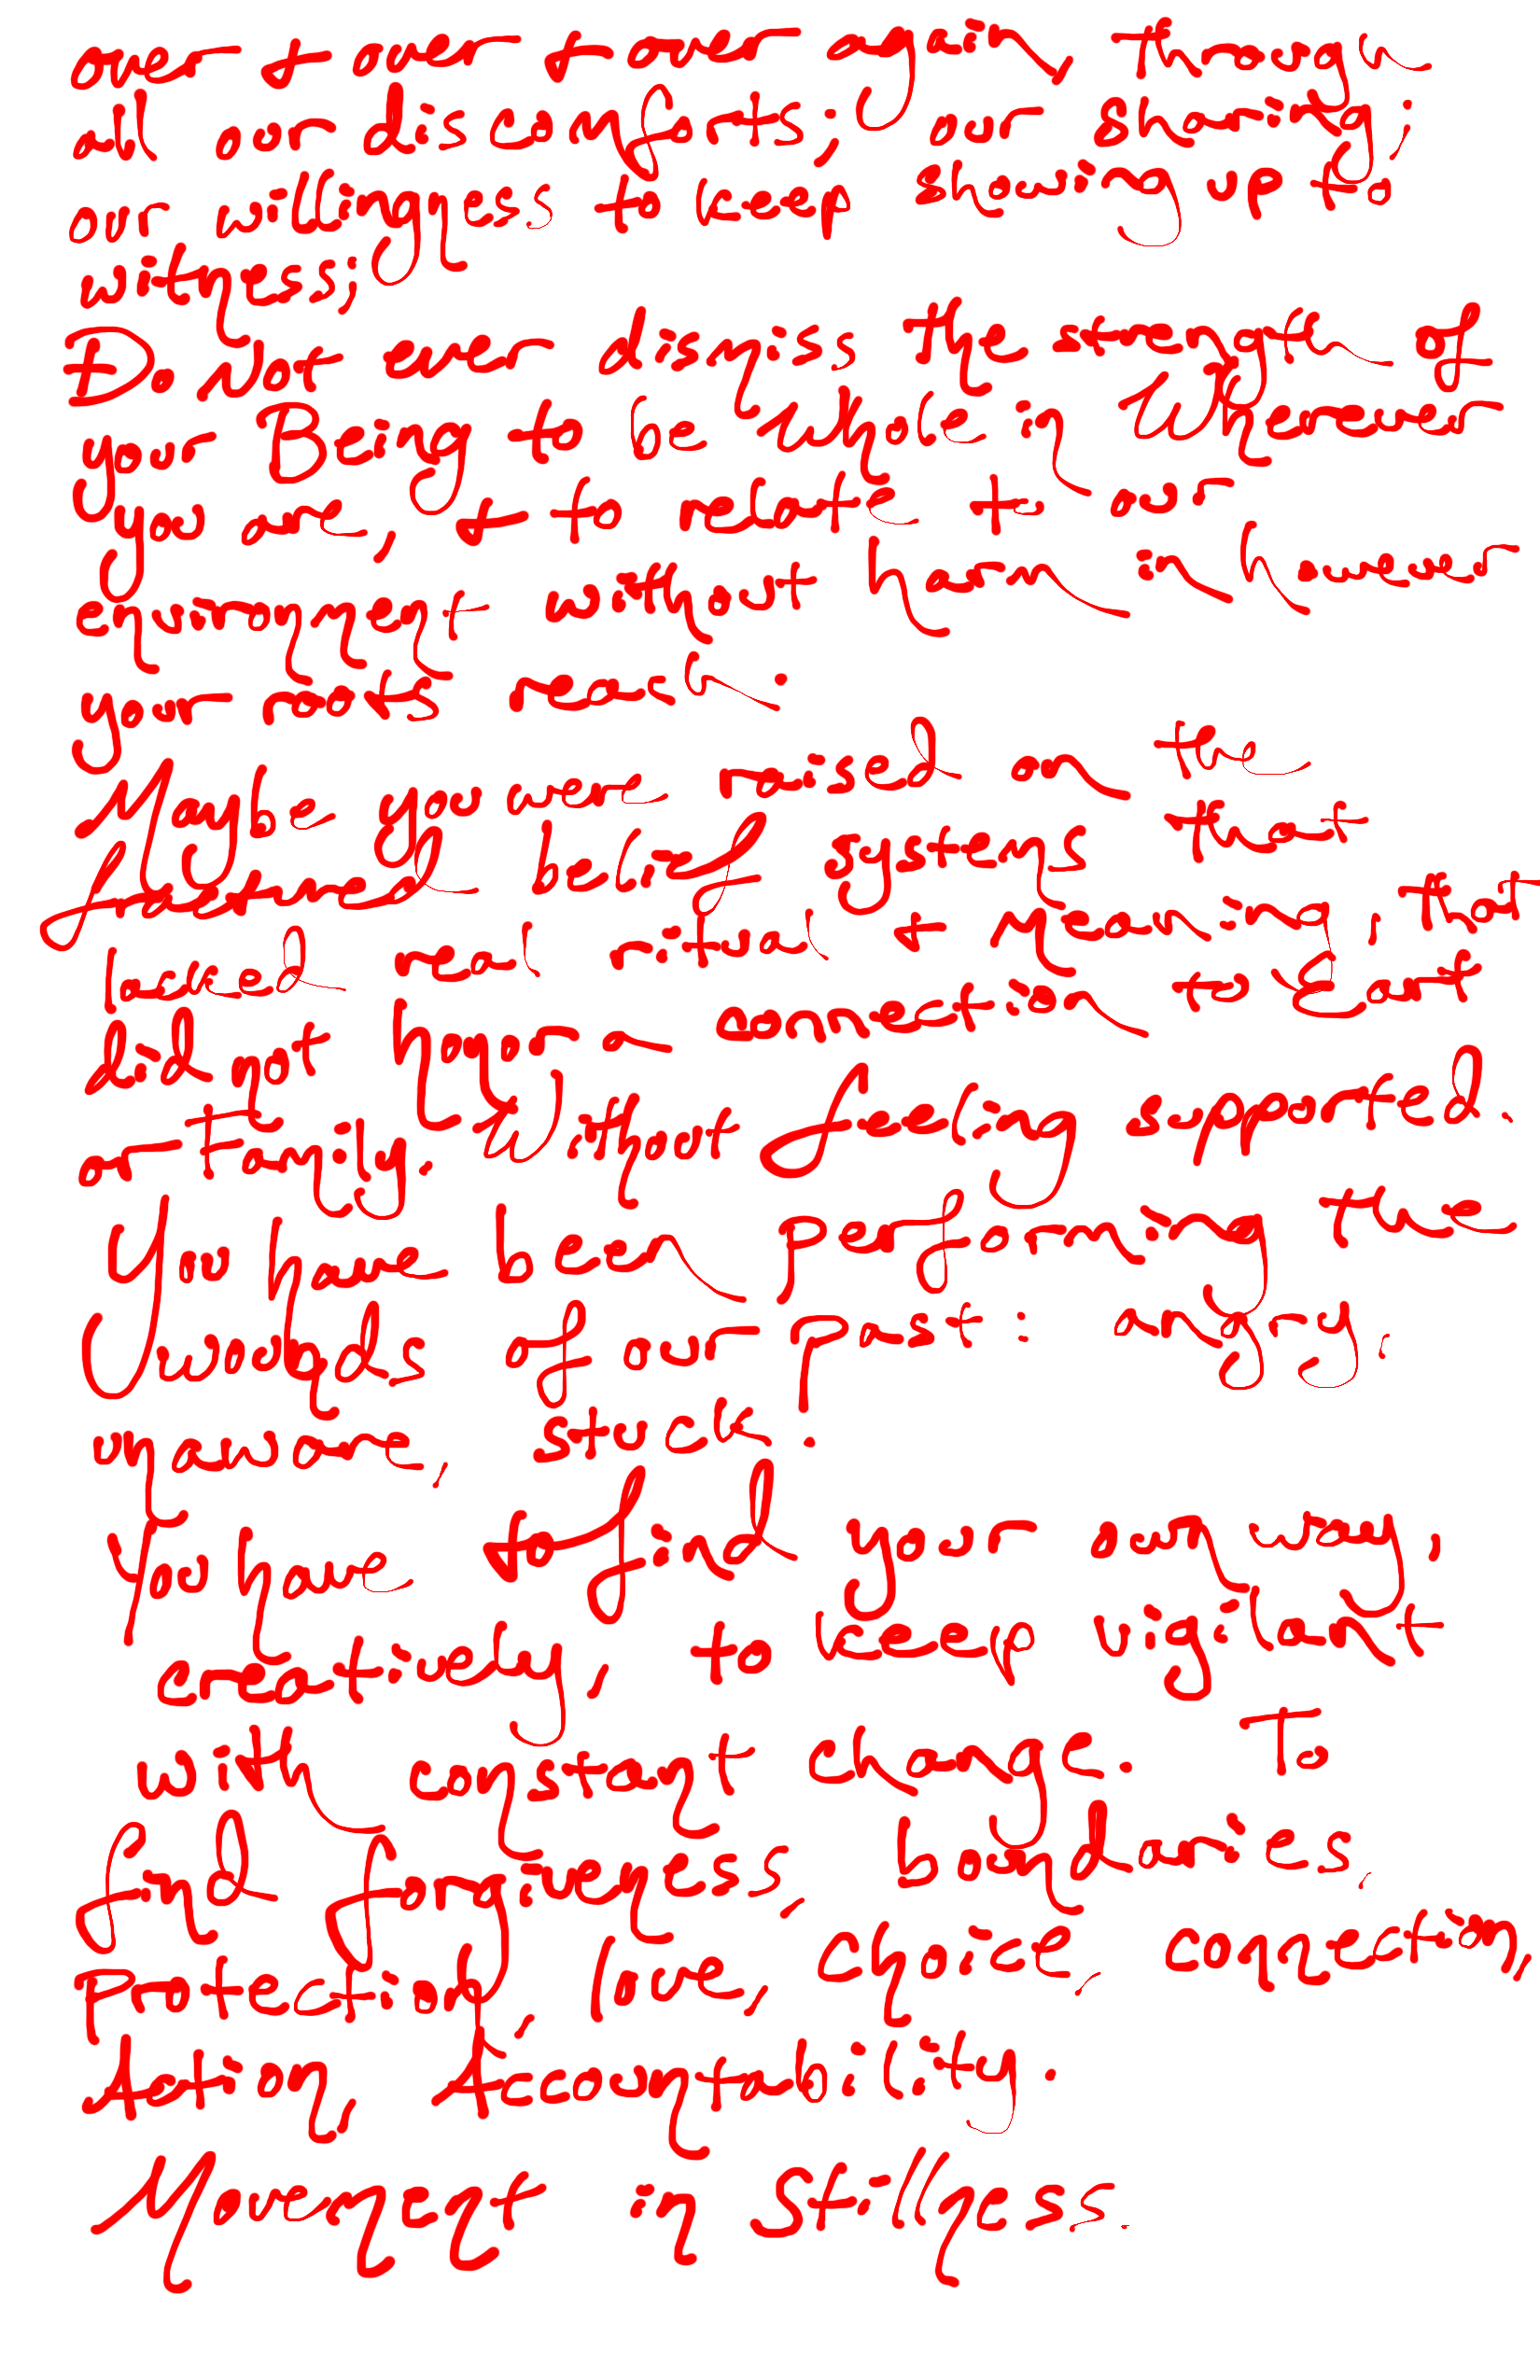 over + over + over again, through
all our discomforts; our sharing;
our willingness to keep showing up to
witness;
Do Not ever dismiss the strength of
your Being to be whole in Wherever
you are, + to relate to our
environment without harm in however
your roots reach.
Maybe you were raised on the
fractured belief systems that
lacked real ritual + meaning, that
did not honor a connection to Eart
or Family. Without feeling supported.
You have been performing the
wounds of our past: angry,
unaware, stuck.
You have to find your own way,
creatively, to keep vigilant
with constant change. To
find forgiveness, boundaries,
protection, love, choice, connection,
Action, Accountability.
Movement in Stillness.